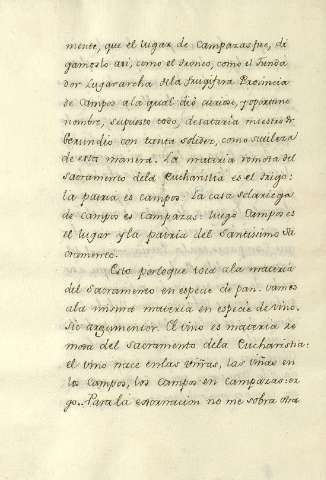 mente, que el lugar de Campazas fue, di
gamoslo asi, como el tronco, como el funda
dor Lugararcha dela frugifera Provincia
de Campos ala qual dió curioso, y oportuno
nombre, supuesto todo, desataria nuestro fr.
Gerundio con tanta solidez, como sutileza
de esta manera. La materia remota del
Sacramento dela Eucharistia es el trigo:
la patria es campos: La casa solariega
de campos es campazas: luego Campos es
el lugar y la patria del Santissimo Sa
cramento.
Esto porloque toca ala materia
del Sacramento en especie de pan. vamos
ala misma materia en especie de vino.
Sic argumentor. El vino es materia re
mota del Sacramento dela Eucharistia:
el vino nace enlas viñas, las viñas en
los campos, los campos en campazas: er
go. Para la confirmacion no me sobra otra